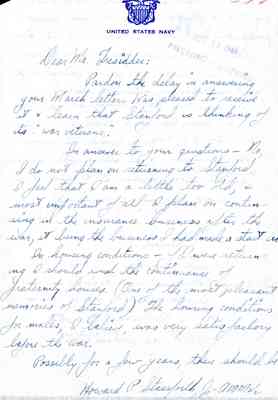 UNITED STATES NAVY
Dear Mr. Tresidder:
Pardon the delay in answering
your March letter. Was pleased to receive
it & learn that Stanford is thinking of
its war veterans.
In answer to your questions – No,
I do not plan on returning to Stanford.
I feel that I am a little too old, &
most important of all I plan on contin-
uing in the insurance business after the
war, it being the business I had made a start in.
On housing conditions – If I were return-
ing I should want the continuance of
fraternity houses (One of the most pleasant
memories of Stanford) The housing conditions
for males, I believe, was very satisfactory
before the war.
Possibly for a few years, there should be
Howard P. Jr.